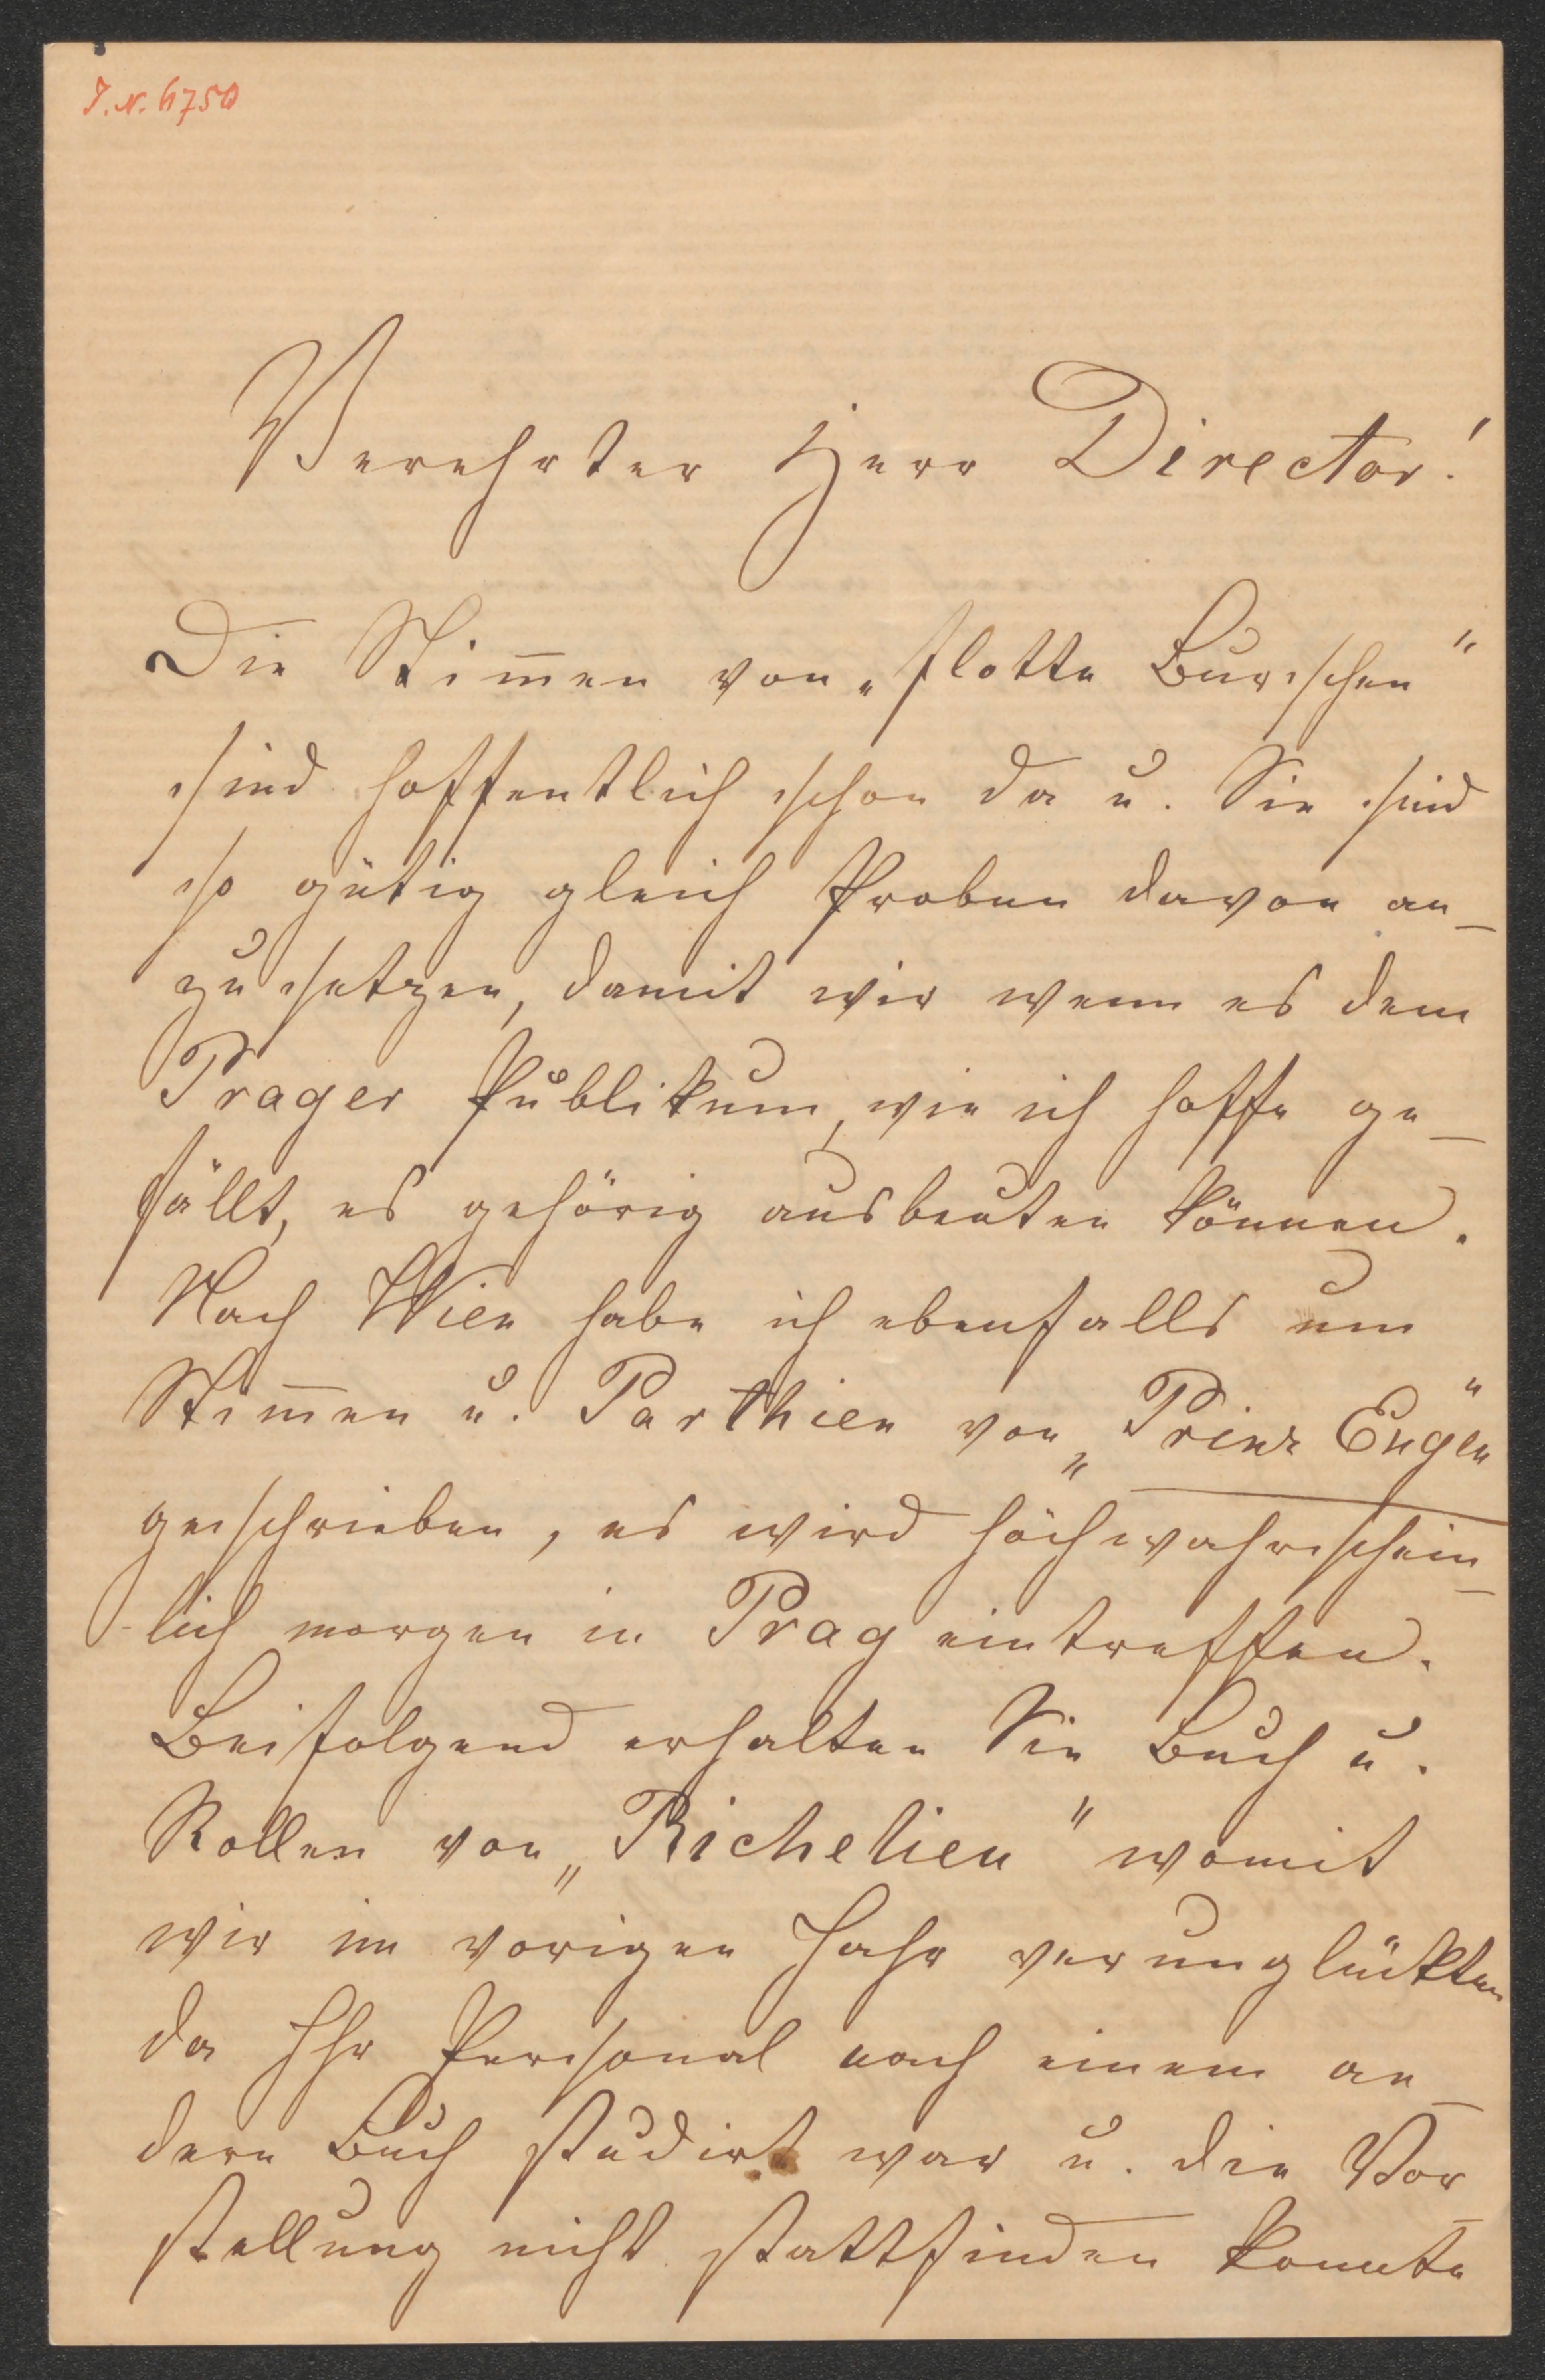 I. N. 6750
Verehrter Herr Director!
Die Stim̅en von „flotte Burschen"
sind hoffentlich schon da u. Sie sind
so gütig gleich Proben davon an-
zusetzen, damit wir wenn es dem
Prager Publikum, wie ich hoffe ge-
fällt, es gehörig ausbeuten können.
Nach Wien habe ich ebenfalls um
Stim̅en u. Parthien von „Prinz Eugen"
geschrieben, es wird höchwahrschein-
lich morgen in Prag eintreffen.
Beifolgend erhalten Sie Buch u.
Rollen von „Richelieu" womit
wir im vorigen Jahr verunglückten
da Ihr Personal nach einem an-
dern Buch studirt war u. die Vor-
stellung nicht stattfinden konnte